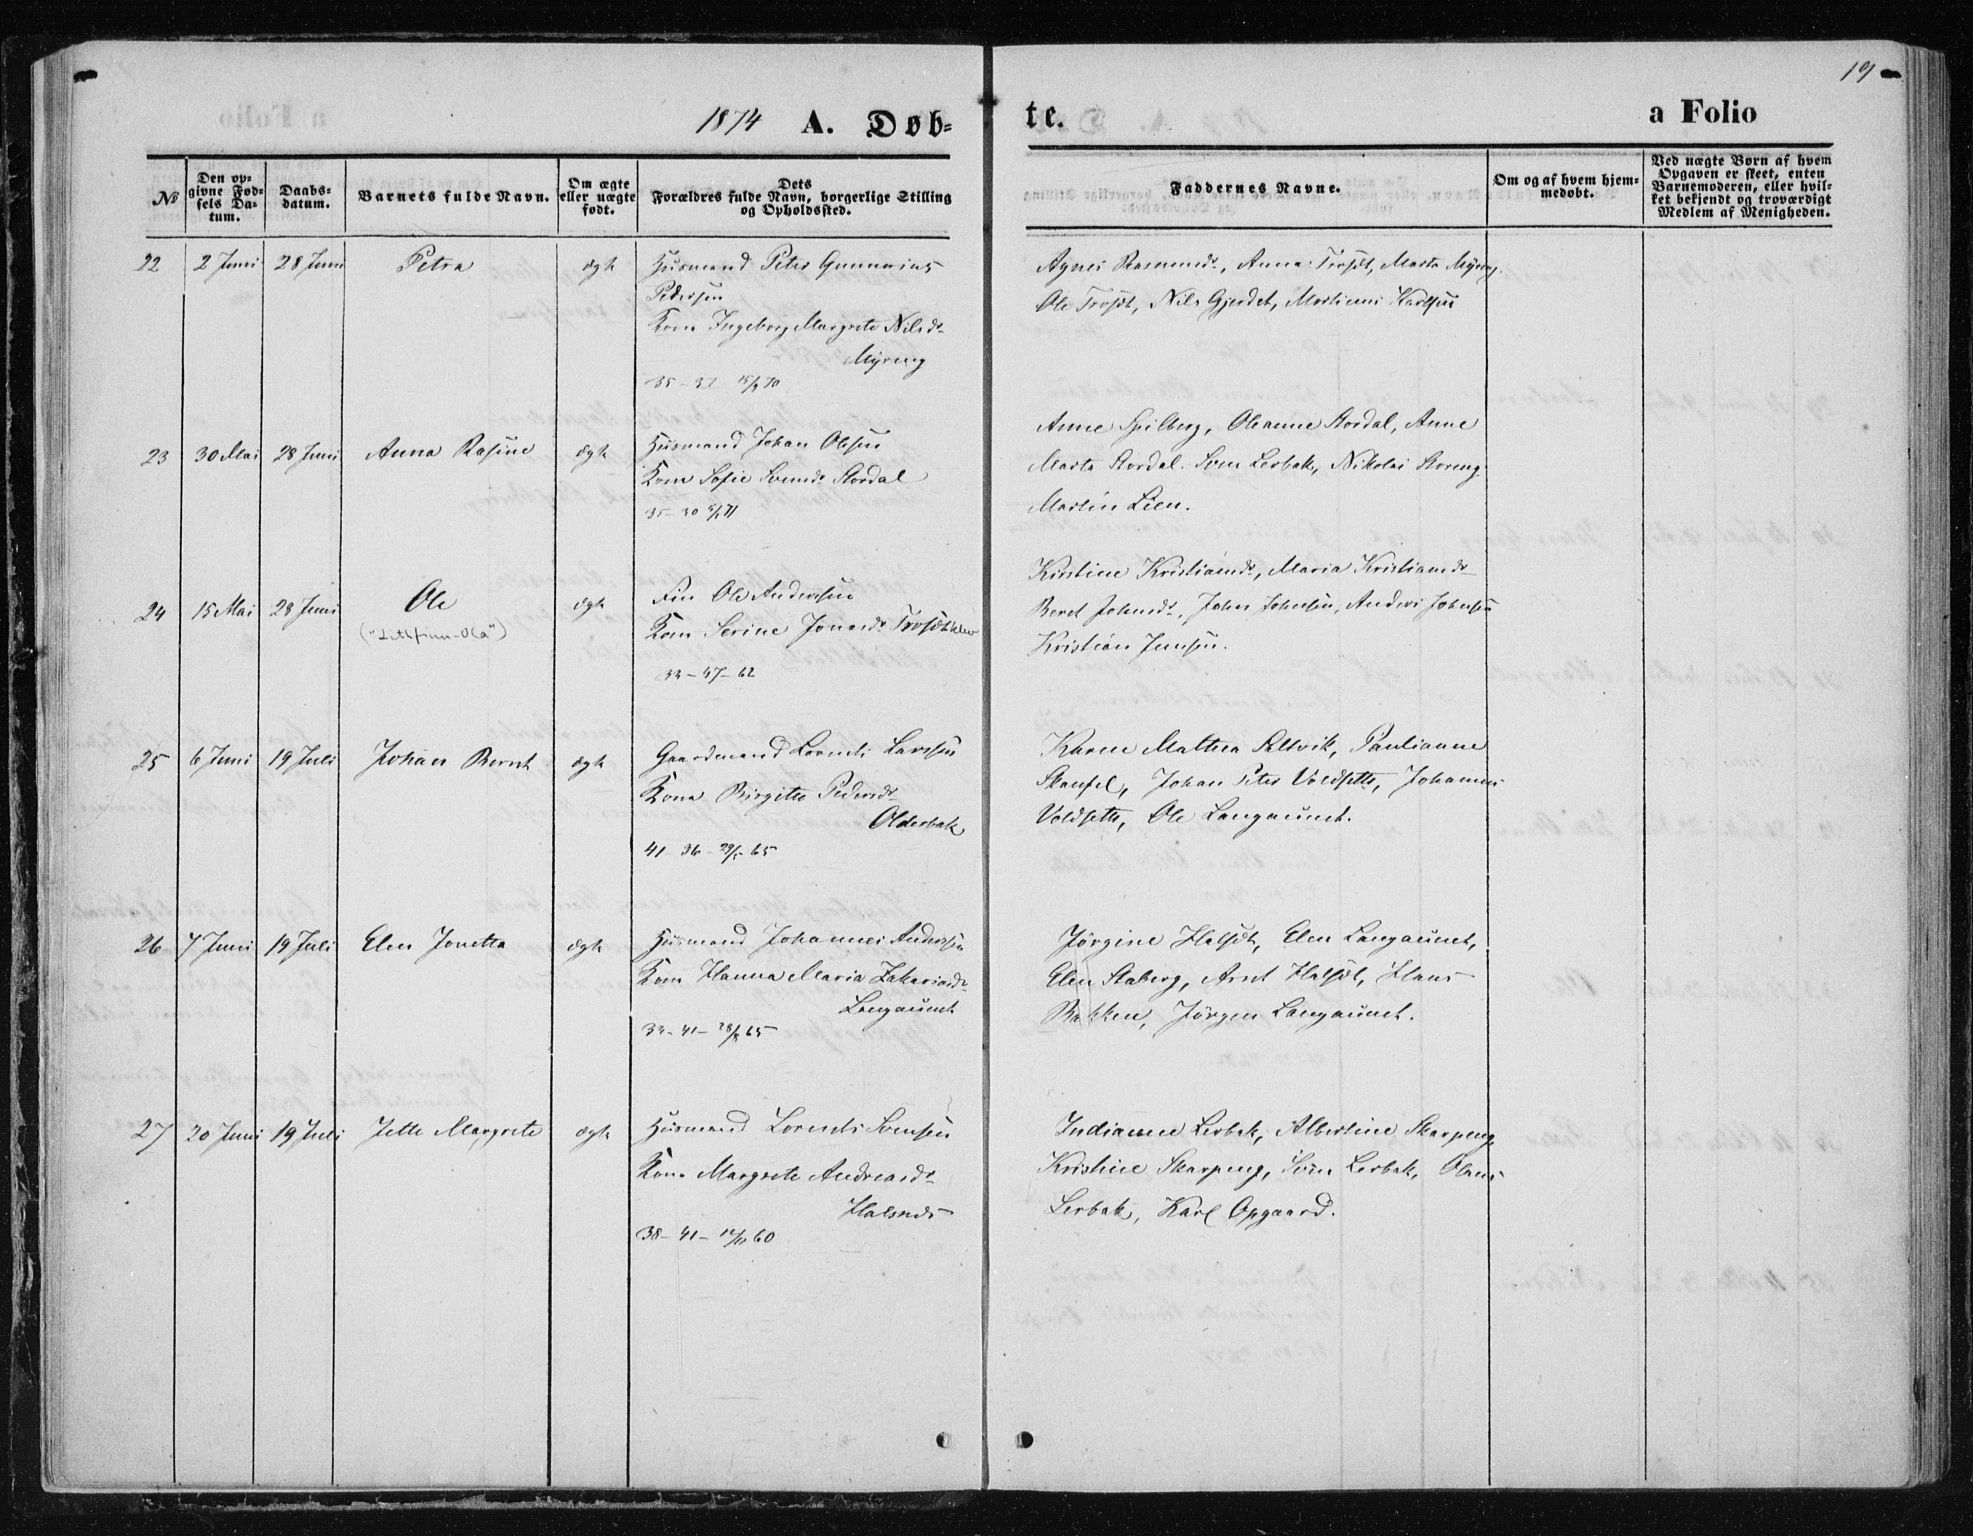 19
1874 A. Døb-
te.
a Folio
No
Den op-
givne Fød-
sels Da-
tum.
Daabs-
datum.
Barnets fulde Navn.
Om ægte
eller uægte
født.
Dets
Forældres fulde Navn, borgerlige Stilling
og Opholdssted.
Faddernes Navne.
Om og af hvem hjem-
medøbt.
Ved uægte Børn af hvem
Opgaven er skeet, enten
Barnemoderen, eller hvil-
ket bekjendt og troværdigt
Medlem af Menigheden.
22 2 Juni 28 Juni Petra ægte Husmand Peter Gunnarius
Pedersen
Kone Ingeborg Margrete Nilsdr
Myreng
35 - 32 70
Agnes Rasmusdr, Anna Trosdt, Marta Myreng
Ole Trosdt, Nils Gjerdet, Martinus Karlsen
23 30 Mai 28 Juni Anna Rasine ægte Husmand Johan Olsen
Kone Sofie Svensdr Stordal
35 - 30 71
Anne Spilberg, Oleanne Stordal, Anne
Marta Stordal. Sven Lerbak, Nikolai Storeng
Martin Lien.
24 15 Mai 28 Juni Ole ægte Fin Ole Andersen
("Litlfinn-Ola")
Kone Serine Jonasdr Trosdtklev
33 - 37 - 62
Kirstine Kristiansdr, Maria Kristiansdr
Beret Johnsdr, John Johnsen, Anders Johnsen
Kristian Jensen.
25 6 Juni 19 Juli Johan Bernt ægte Gaardmand Lorents Larsen
Kone Birgitte Pedersdr
Olderbak
41 - 36 - 29/5 65
Karen Mathea Saltvik, Paulianne
Skaufel, Johan Peter Voldsette, Johannes
Voldsette, Ole Langaunet.
26 7 Juni 19 Juli Elen Jonetta ægte Husmand Johannes Andersen
Kone Hanna Maria Zakariasdr
Langaunet
33 - 41 - 28/8 65
Jørgine Halsdt, Elen Langaunet,
Elen Staberg, Arnt Halsdt, Hans
Bakken, Jørgen Langaunet.
27 20 Juni 19 Juli Jette Margrete ægte Husmand Lorents Svensen
Kone Margrete Andreasdr
Halsnes
38 - 41 - 60
Indianne Lerbak, Albertine Skarpeng,
Kristine Skarpeng, Sven Lerbak, Olaus
Lerbak, Karl Opgaard.